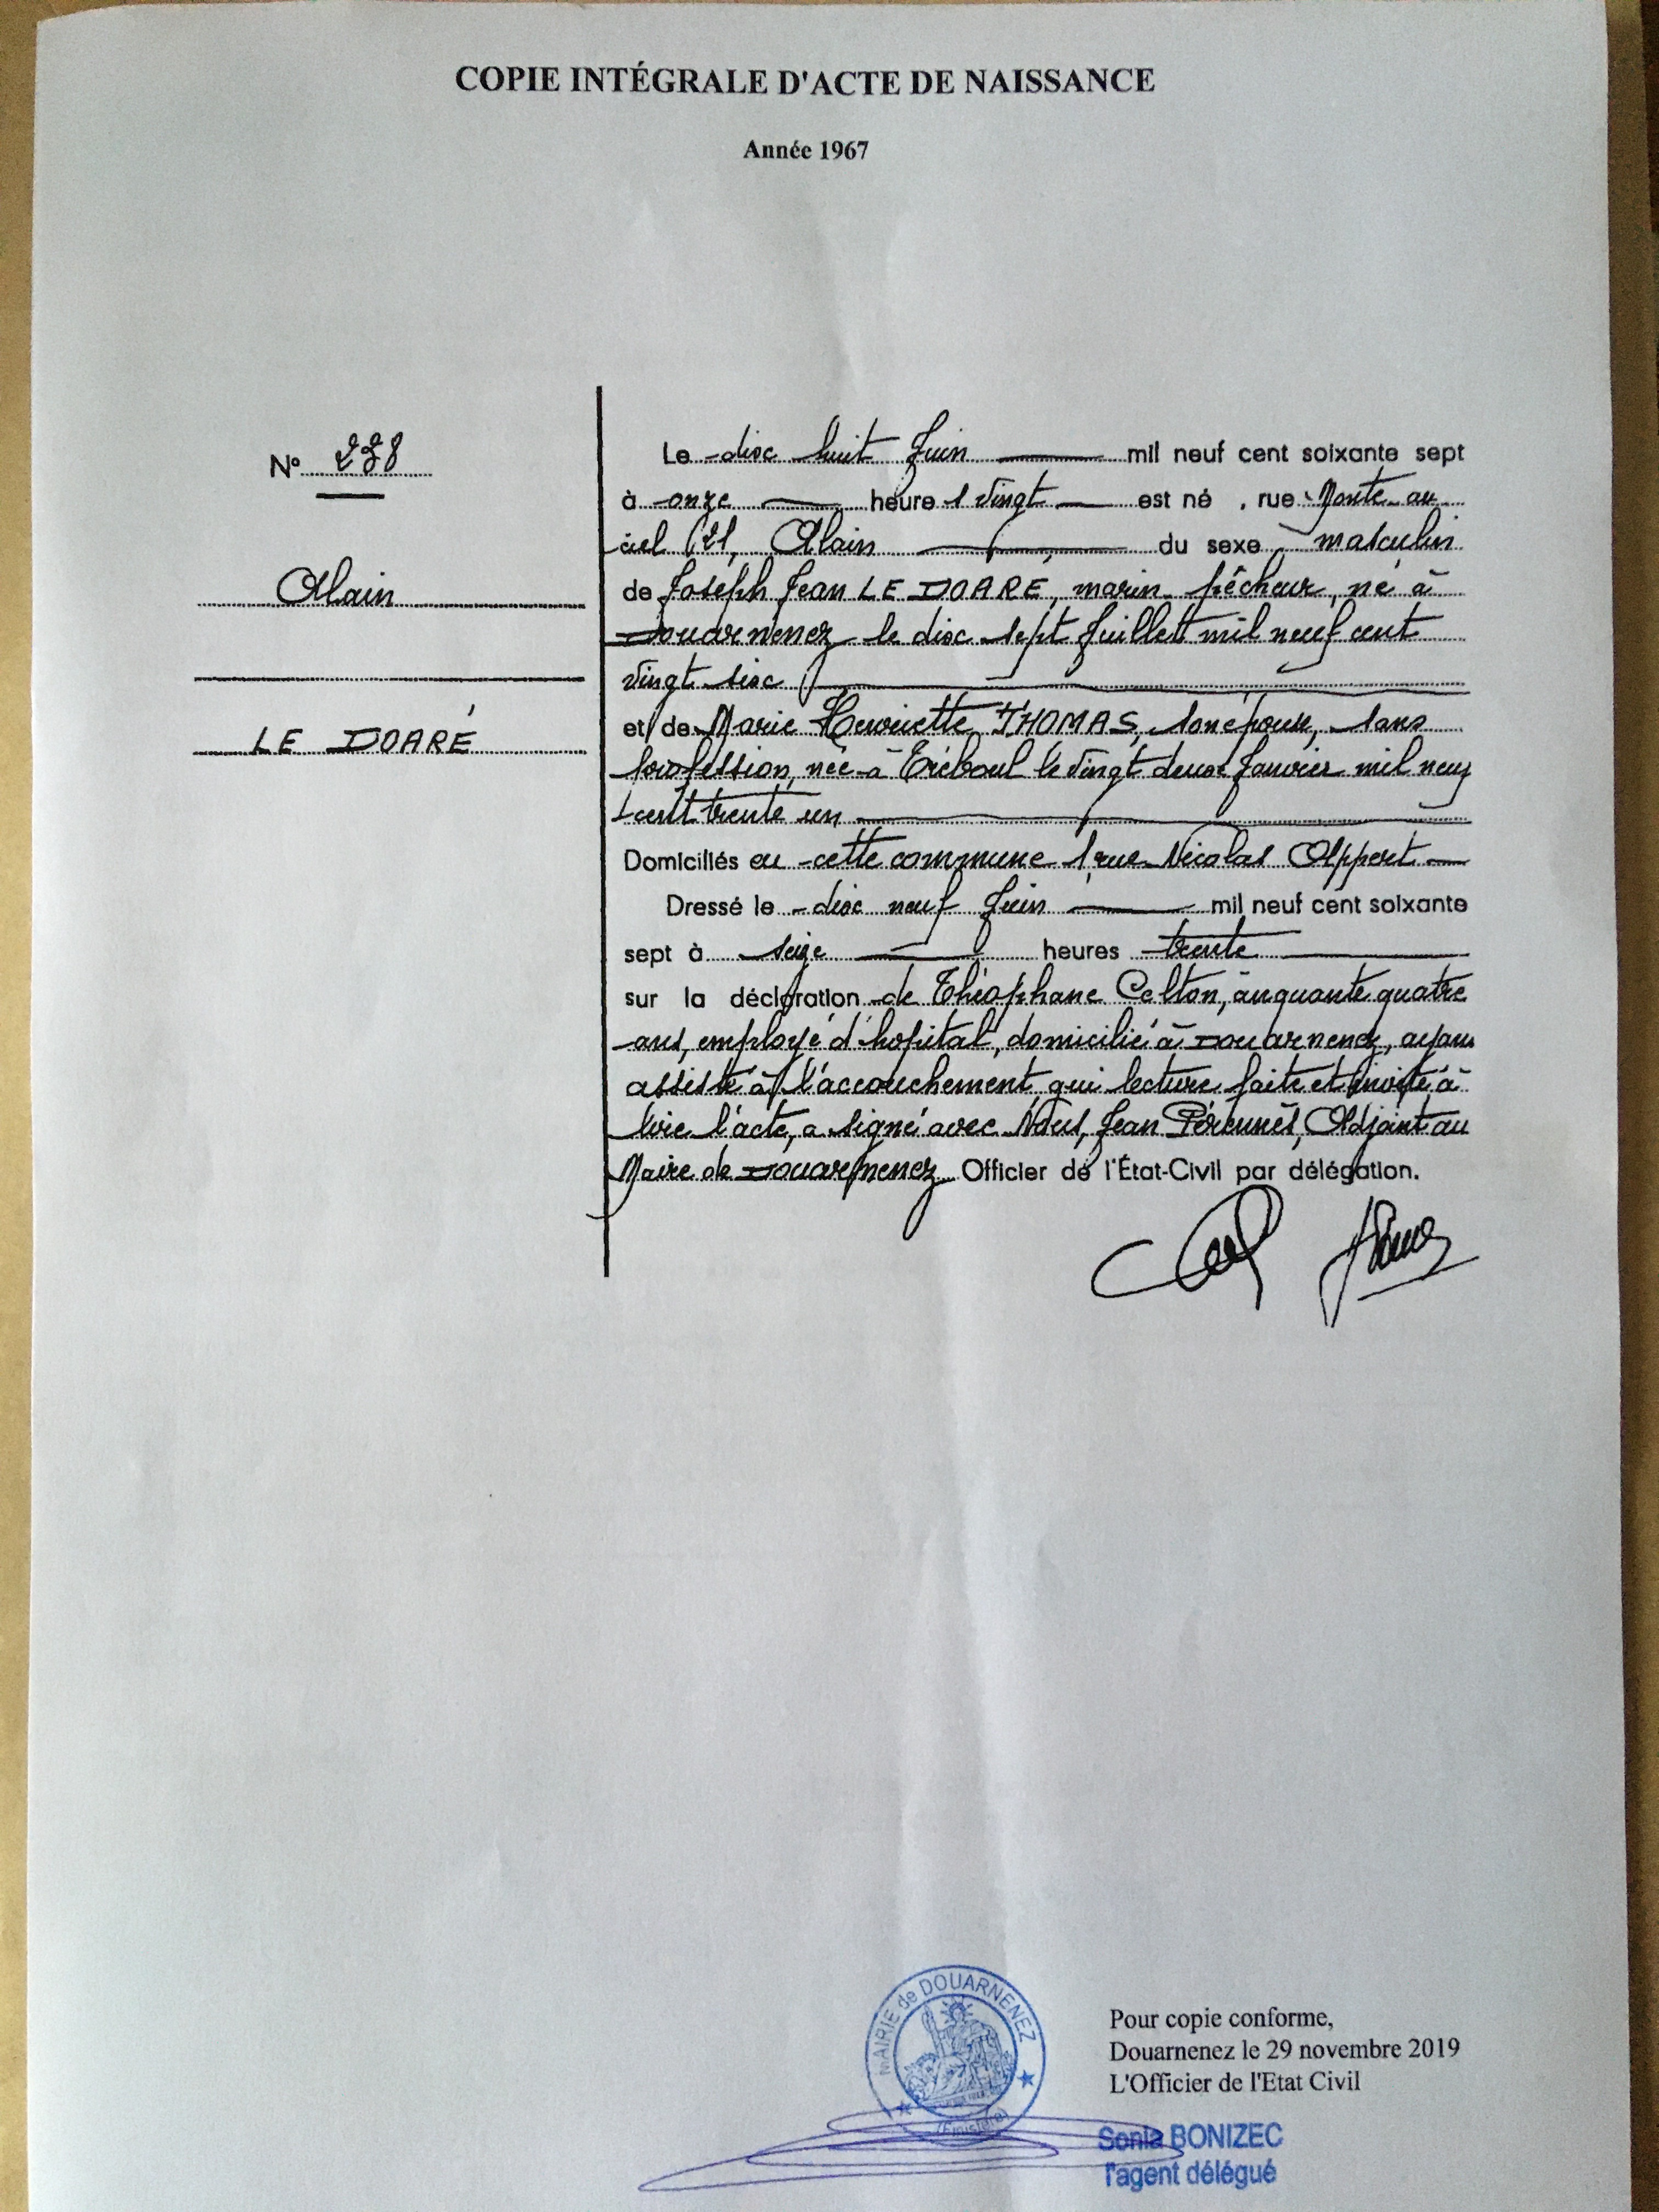 COPIE INTÉGRALE D'ACTE DE NAISSANCE
Année 1967
N° 238
Alain
LE DOARÉ
Le dix huit Juin mil neuf cent soixante sept
à onze heure s vingt est né , rue Monte au
ciel 121, Alain du sexe masculin
de Joseph Jean LE DOARÉ, marin-pêcheur, né à
Douarnenez le dix sept Juillet mil neuf cent
vingt six
et de Marie Henriette THOMAS, son épouse, sans
profession, née à Tréboul le vingt deux Janvier mil neuf
cent trente un
Domiciliés en cette commune 1, rue Nicolas Appert
Dressé le dix neuf Juin mil neuf cent soixante
sept à seize heures trente
sur la déclaration de Théophane Celton, cinquante quatre
ans, employé d'hôpital, domicilié à Douarnenez, ayant
assisté à l'accouchement, qui lecture faite et invité à
lire l'acte, a signé avec Nous, Jean Pérennès, Adjoint au
Maire de Douarnenez Officier de l'État-Civil par délégation.
MAIRIE de DOUARNENEZ
(Finistère)
Pour copie conforme,
Douarnenez le 29 novembre 2019
L'Officier de l'Etat Civil
Sonia BONIZEC
l'agent délégué